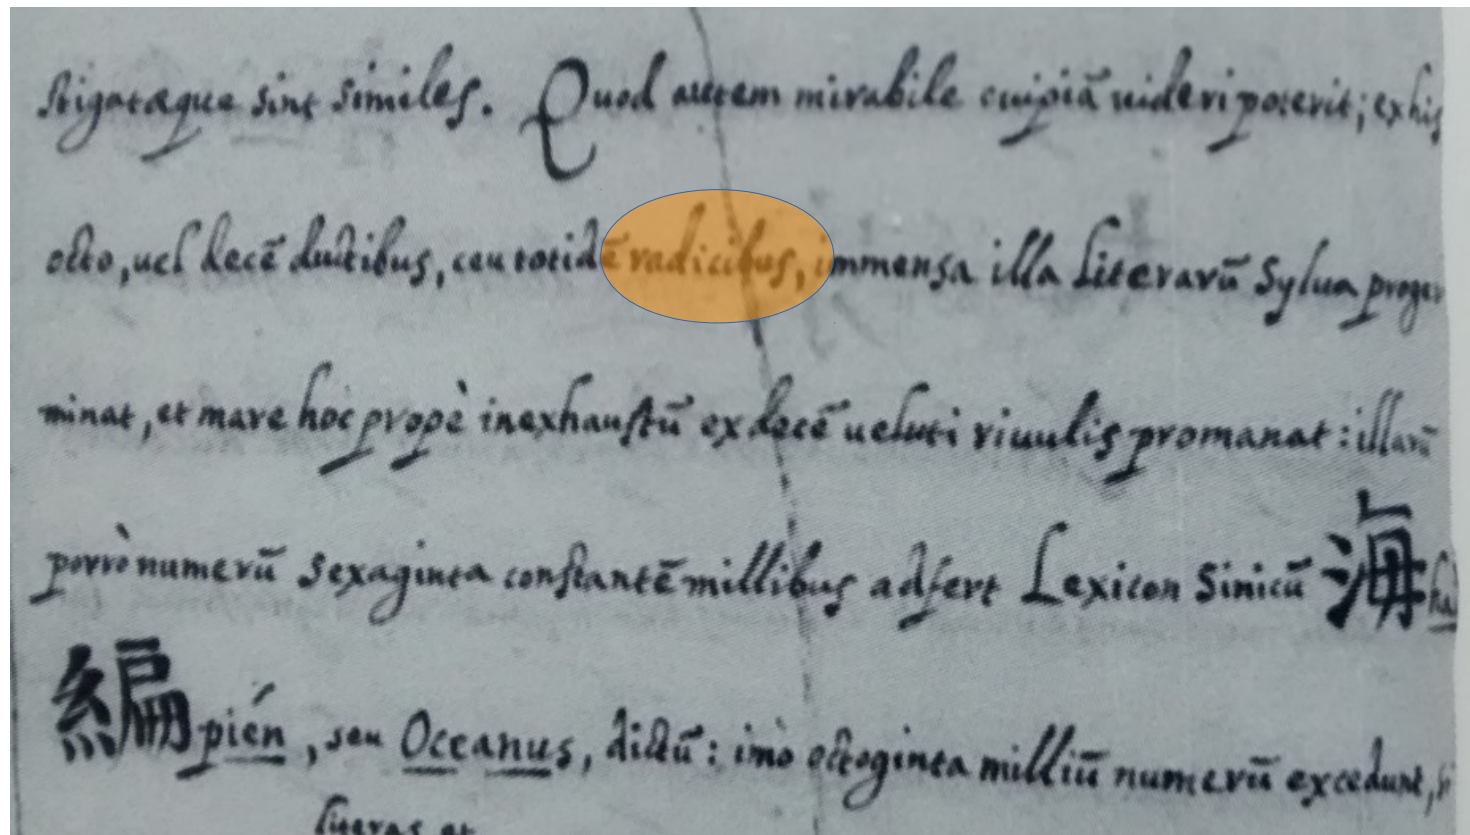 strigatæque sint similes. Quod autem mirabile cuipiā videri poterit; ex his
octo, uel decē ductibus, ceu totidē radicibus, immensa illa Literarū Sylua proger
minat, et mare hoc propè inexhaustū ex decē ueluti riuulis promanat: illarū
porrò numerū sexaginta constantē millibus adfert Lexicon Sinicū 海 hai
編 pién, seu Oceanus, dictū: imò octoginta milliū numerū excedunt, si
literas et